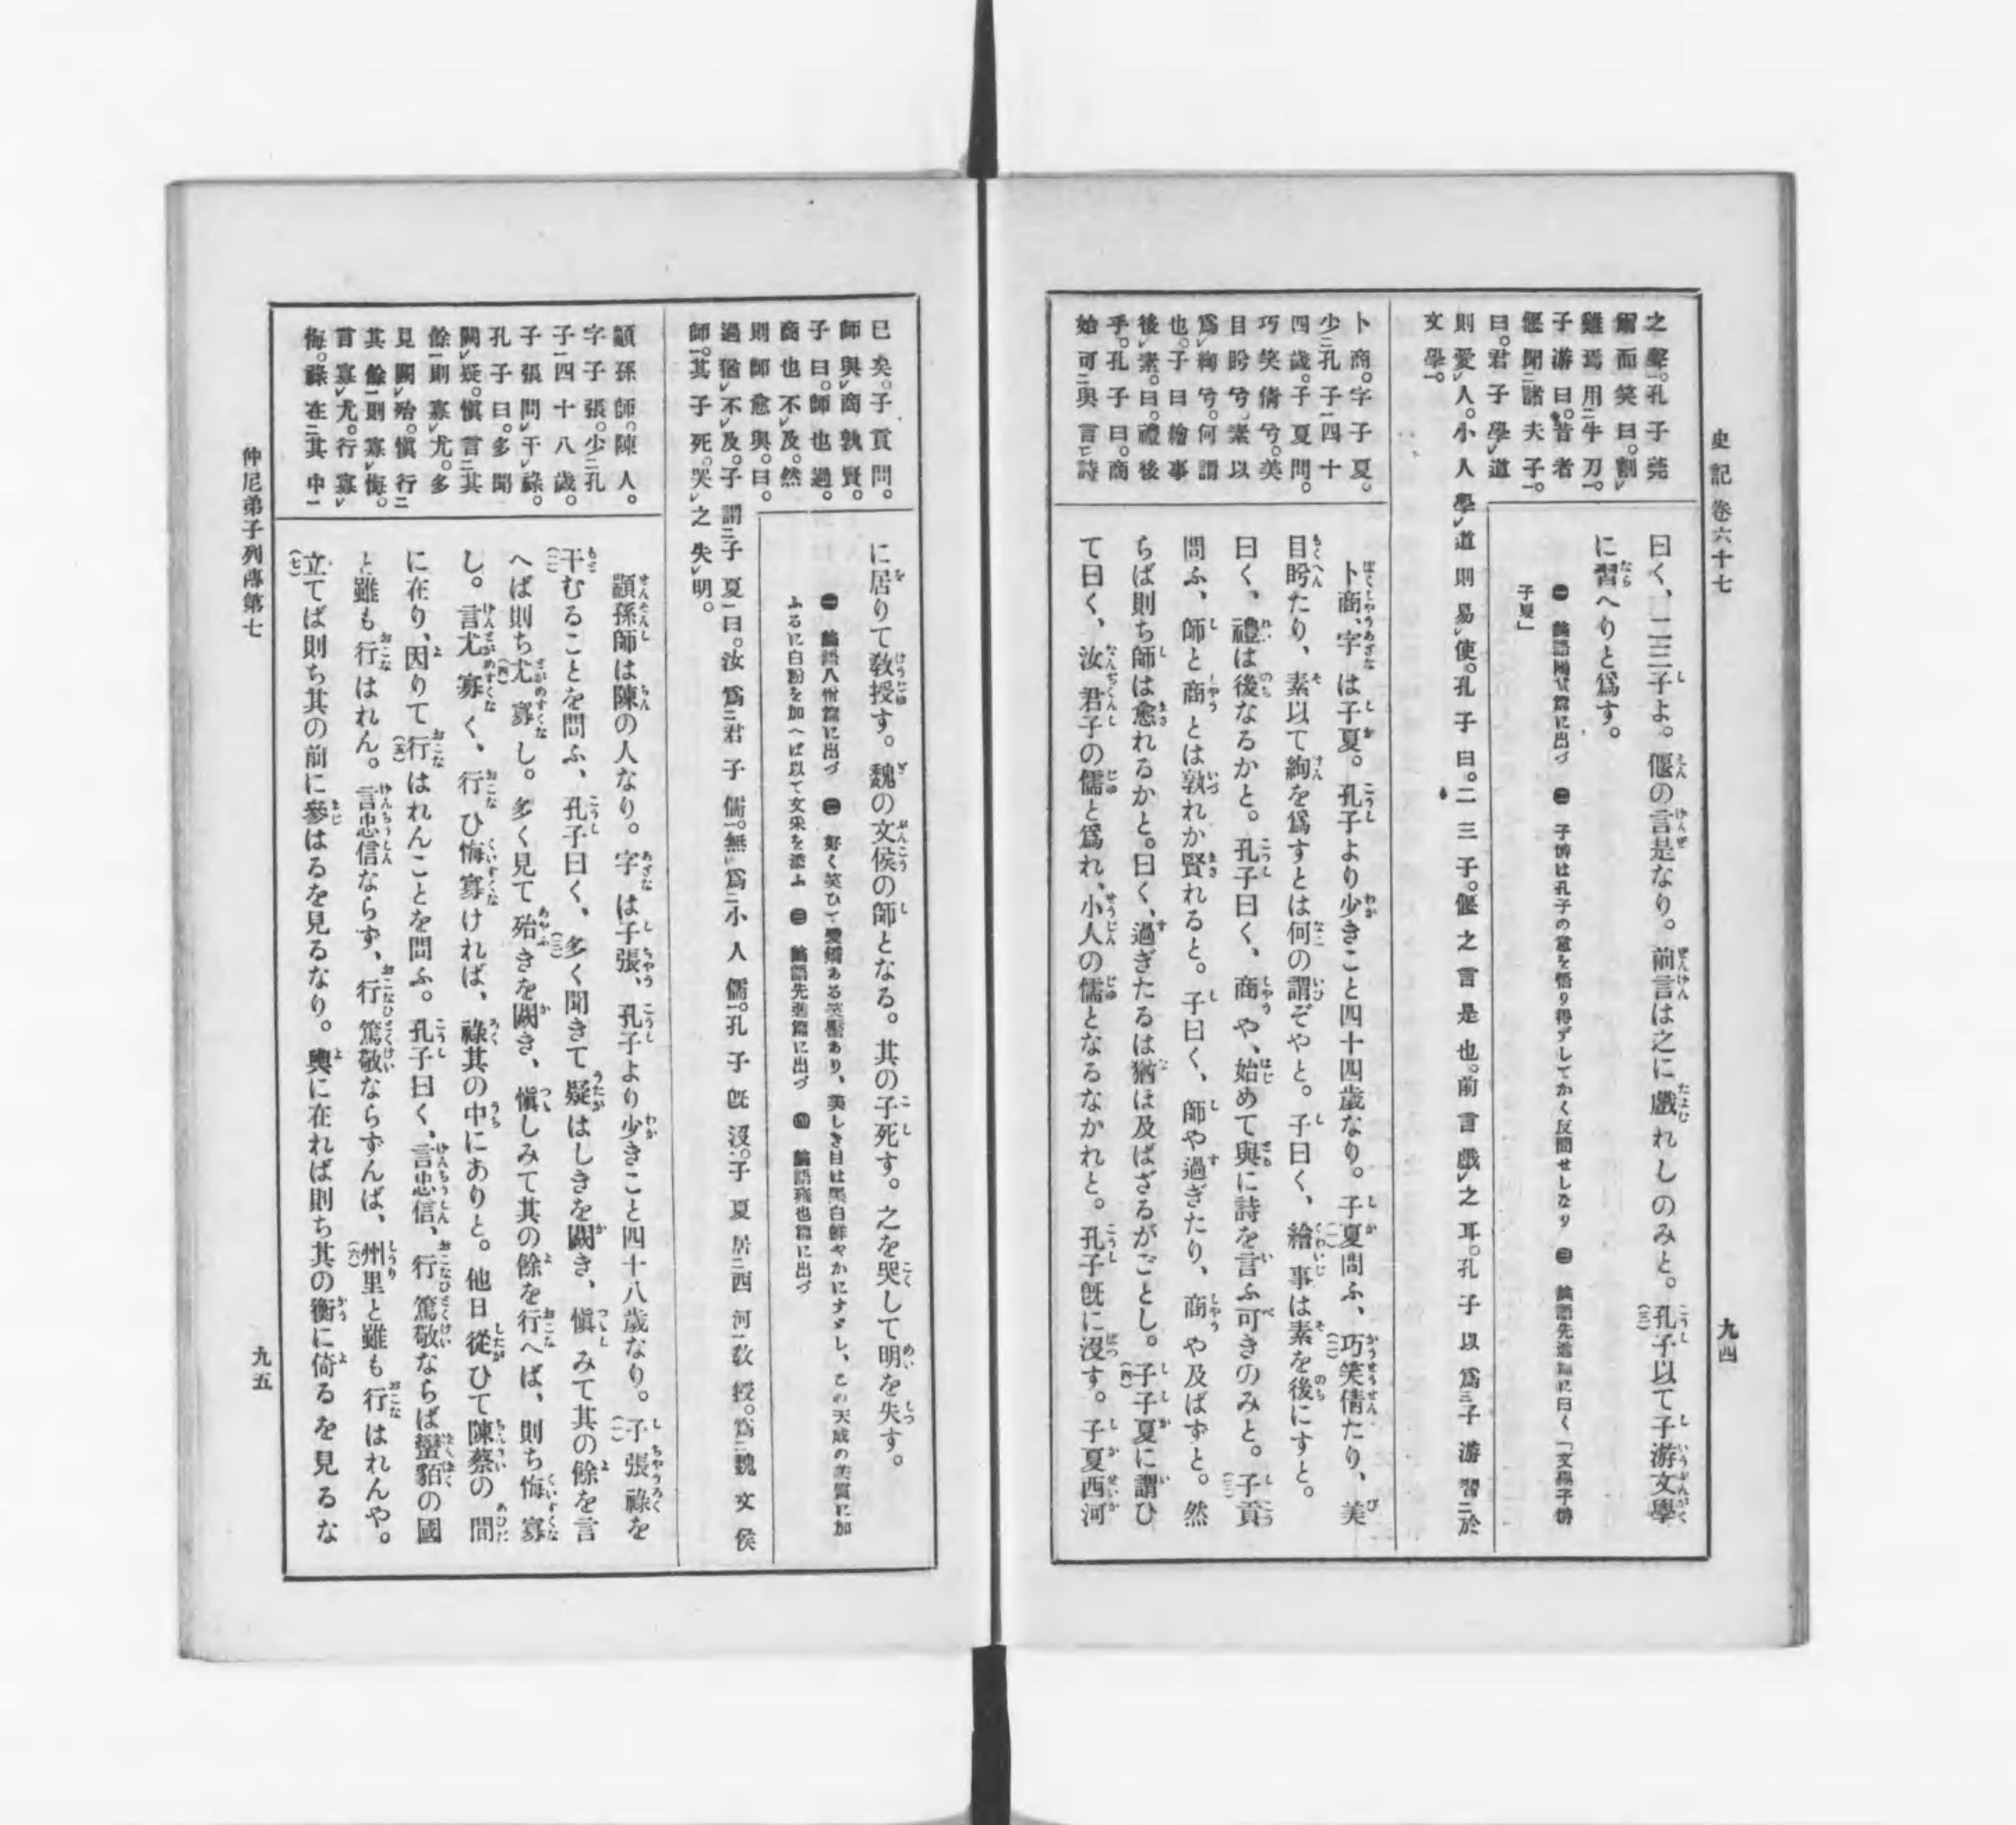 史記卷六十七
九四
之聲。孔子莞
爾而笑曰。割
雞焉用牛刀。
子游曰。昔者
偃聞諸夫子。
曰。君子學道
則愛人。小人學道則易使。孔子曰。二三子。偃之言是也。前言戲之耳。孔子以爲子游習於
文學。
曰く、二三子よ。偃の言是なり。前言は之に戲れしのみと。孔子以て子游文學
に習へりと爲す。
㊀ 論語陽貨篇に出づ ㊁ 子游は孔子の意を悟り得ずしてかく反問せしなり ㊂ 論語先進篇に曰く「文學子游
子夏」
卜商。字子夏。
少孔子四十
四歲。子夏問。
巧笑倩兮。美
目盻兮。素以
爲絢兮。何謂
也。子曰繪事
後素。曰。禮後
乎。孔子曰。商
始可與言詩
卜商、字は子夏。孔子より少きこと四十四歲なり。子夏問ふ、巧笑倩たり、美
目盻たり、素以て絢を爲すとは何の謂ぞやと。子曰く、繪事は素を後にすと。
曰く、禮は後なるかと。孔子曰く、商や、始めて與に詩を言ふ可きのみと。子貢
問ふ、師と商とは孰れか賢れると。子曰く、師や過ぎたり、商や及ばずと。然
らば則ち師は愈れるかと。曰く、過ぎたるは猶ほ及ばざるがごとし。子子夏に謂ひ
て曰く、汝君子の儒と爲れ、小人の儒となるなかれと。孔子旣に沒す。子夏西河
已矣。子貢問。
師與商孰賢。
子曰。師也過。
商也不及。然
則師愈與。曰。
過猶不及。子謂子夏曰。汝爲君子儒。無爲小人儒。孔子旣沒。子夏居西河敎授。爲魏文侯
師。其子死。哭之失明。
に居りて敎授す。魏の文侯の師となる。其の子死す。之を哭して明を失す。
㊀ 論語八佾篇に出づ ㊁ 好く笑ひて愛嬌ある笑靨あり、美しき目は黑白鮮やかにすゞし、この天成の美質に加
ふるに白粉を加へば以て文采を添ふ ㊂ 論語先進篇に出づ ㊃ 論語雍也篇に出づ
顓孫師。陳人。
字子張。少孔
子四十八歲。
子張問干祿。
孔子曰。多聞
闕疑。愼言其
餘則寡尤。多
見闕殆。愼行
其餘則寡悔。
言寡尤。行寡
悔。祿在其中
顓孫師は陳の人なり。字は子張、孔子より少きこと四十八歲なり。子張祿を
干むることを問ふ、孔子曰く、多く聞きて疑はしきを闕き、愼みて其の餘を言
へば則ち尤寡し。多く見て殆きを闕き、愼しみて其の餘を行へば、則ち悔寡
し。言尤寡く、行ひ悔寡ければ、祿其の中にありと。他日從ひて陳蔡の間
に在り、因りて行はれんことを問ふ。孔子曰く、言忠信、行篤敬ならば蠻貊の國
と雖も行はれん。言忠信ならず、行篤敬ならずんば、州里と雖も行はれんや。
立てば則ち其の前に參はるを見るなり。輿に在れば則ち其の衡に倚るを見るな
仲尼弟子列傳第七
九五